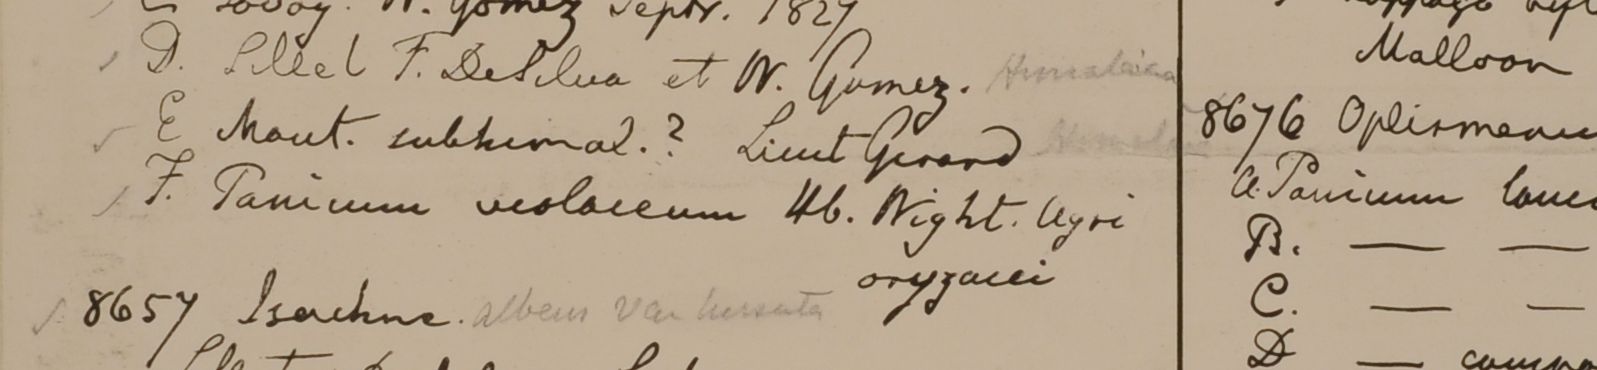 W. Gomez Septr. 1827
D. Sillet F. DeSilva et W. Gomez. Himalaica
E Mont. subhimal.? Lieut Gerard
F. Panicum violaceum Hb. Wight. Agri
oryzacei
8657 Isachne. albens var hirsuta
Malloon
8676 Oplismenu
a. Panicum lanc
B. — —
C. — —
D — compo